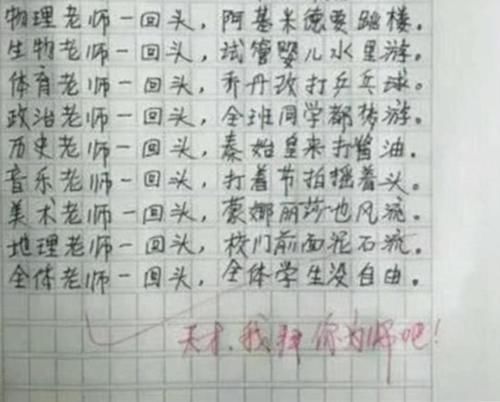 物理老师一回头，阿基米德要跳楼。
生物老师一回头，试管婴儿水里游。
体育老师一回头，乔丹改打乒乓球。
政治老师一回头，全班同学都转游。
历史老师一回头，秦始皇来打酱油。
音乐老师一回头，打着节拍摇着头。
美术老师一回头，蒙娜丽莎也风流。
地理老师一回头，校门前面泥石流。
全体老师一回头，全体学生没自由。
天才，我拜你为师吧！